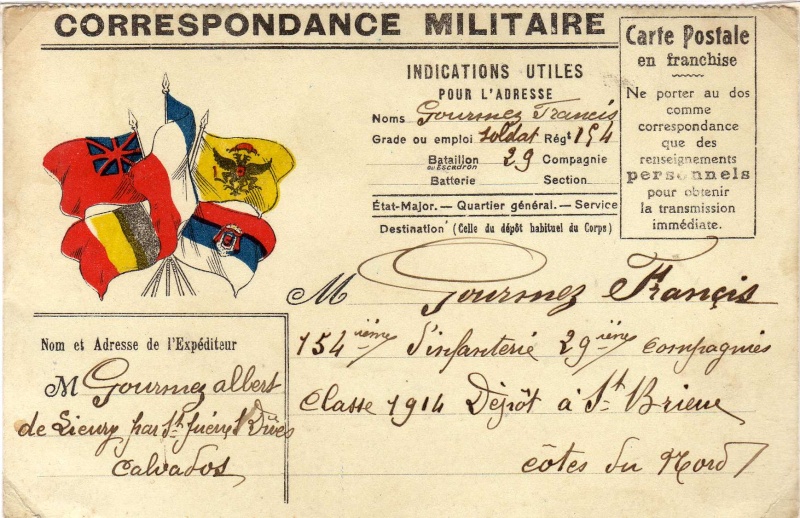 CORRESPONDANCE MILITAIRE
INDICATIONS UTILES
POUR L'ADRESSE
Noms Gourmez Francis
Grade ou emploi soldat Régt 154
Bataillon ou Escadron 29 Compagnie
Batterie Section
État-Major. — Quartier général. — Service
Destination (Celle du dépôt habituel du Corps)
Carte Postale
en franchise
Ne porter au dos
comme
correspondance
que des
renseignements
personnels
pour obtenir
la transmission
immédiate.
M Gourmez Françis
154ième d'infanterie 29ième compagnies
Classe 1914 Dépôt à St Brieuc
côtes du Nord
Nom et Adresse de l'Expéditeur
M Gourmez albert
de Lieury par St
Calvados